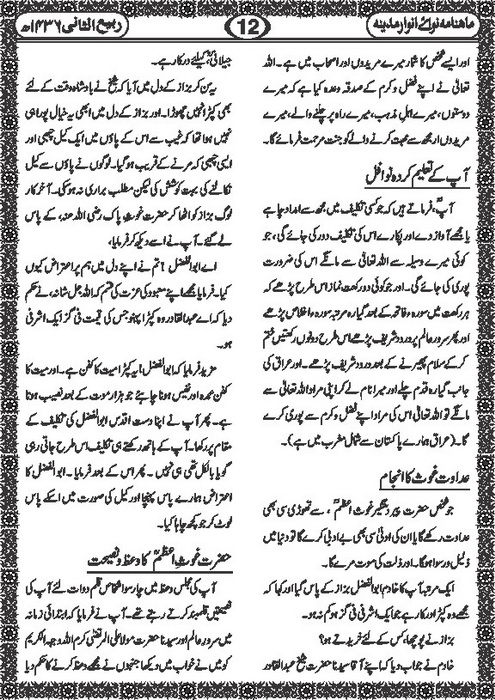 ماہنامہ نوائے انوار مدینہ
12
ربیع الثانی ۱۴۳۶ھ
اور ایسے شخص کا شمار میرے مریدوں اور اصحاب میں ہے۔ اللہ
تعالیٰ نے اپنے فضل و کرم کے صدقہ وعدہ کیا ہے کہ میرے
دوستوں، میرے اہل مذہب، میرے راہ پر چلنے والے، میرے
مریدوں اور مجھ سے محبت کرنے والے کو جنت مرحمت فرمائے گا۔
آپ کے تعلیم کردہ نوافل
آپؒ فرماتے ہیں کہ جو کسی تکلیف میں، مجھ سے امداد چاہے
یا مجھے آواز دے اور پکارے اس کی تکلیف دور کی جائے گی، جو
کوئی میرے وسیلہ سے اللہ تعالیٰ سے مانگے اس کی ضرورت
پوری کی جائے گی۔ اور جو کوئی دو رکعت نماز اس طرح پڑھے کہ
ہر رکعت میں سورہ فاتحہ کے بعد گیارہ مرتبہ سورہ اخلاص پڑھے
اور پھر سرور عالم پر درود شریف پڑھے اس طرح دونوں رکعتیں ختم
کر کے سلام پھیرنے کے بعد درود شریف پڑھے۔ اور عراق کی
جانب گیارہ قدم چلے اور میرا نام لے کر اپنی مراد اللہ تعالیٰ سے
مانگے تو اللہ تعالیٰ اس کی مراد اپنے فضل و کرم سے پوری کرے
گا۔ (عراق ہمارے پاکستان سے شمال مغرب میں ہے)۔
عداوت غوث کا انجام
جو شخص حضرت پیر دستگیر غوث اعظمؒ، سے تھوڑی سی بھی
عداوت رکھے گا یا ان کی ادنیٰ سی بھی بے ادبی کرے گا تو دنیا میں
ذلیل و رسوا ہوگا۔ اور ذلت کی موت مرے گا۔
ایک مرتبہ آپ کا خادم ابوالفضل بزاز کے پاس گیا اور کہا کہ
مجھے وہ کپڑا درکار ہے جو ایک اشرفی فی گز ہو کم نہ ہو۔
بزاز نے پوچھا، کس کے لئے خریدتے ہو؟
خادم نے جواب دیا کہ اپنے آقا سیدنا حضرت شیخ عبدالقادر
جیلانیؒ کیلئے درکار ہے۔
یہ سن کر بزاز کے دل میں آیا کہ شیخ نے بادشاہ وقت کے لئے
بھی کپڑا نہیں چھوڑا۔ اور بزاز کے دل میں ابھی یہ خیال پورا ہی
نہیں ہوا تھا کہ غیب سے اس کے پاؤں میں ایک کیل چبھی اور
ایسی چبھی کہ مرنے کے قریب ہو گیا۔ لوگوں نے پاؤں سے کیل
نکالنے کی بہت کوشش کی لیکن مطلب براری نہ ہوسکی۔ آخر کار
لوگ بزاز کو اٹھا کر حضرت غوث پاک رضی اللہ عنہ، کے پاس
لے گئے۔ آپ نے اسے دیکھ کر فرمایا،
اے ابوالفضل! تم نے اپنے دل میں ہم پر اعتراض کیوں
کیا۔ فرمایا مجھے اپنے معبود کی عزت کی قسم کہ اللہ جل شانہ، نے حکم
دیا کہ اے عبدالقادر وہ کپڑا پہنو جس کی قیمت فی گز ایک اشرفی
ہو۔
مزید فرمایا کہ ابوالفضل! یہ کپڑا میت کا کفن ہے۔ اور میت کا
کفن عمدہ اور نفیس ہونا چاہئے جو ہزار موت کے بعد نصیب ہوتا
ہے۔ پھر آپ نے اپنا دست اقدس ابوالفضل کی تکلیف کے
مقام پر رکھا۔ آپ کے ہاتھ رکھتے ہی تکلیف اس طرح جاتی رہی
گویا بالکل تھی ہی نہیں۔ پھر اس کے بعد فرمایا۔ ابوالفضل کا
اعتراض ہمارے پاس پہنچا اور کیل کی صورت میں اسکے پاس
لوٹ کر جو کچھ چاہا کیا۔
حضرت غوث اعظمؒ کا وعظ و نصیحت
آپ کی مجلس وعظ میں چار سو اشخاص قلم دوات لئے آپ کی
نصیحتیں قلمبند کرتے رہتے تھے۔ آپ نے فرمایا کہ ابتدائی زمانہ
میں سرور عالم اور سیدنا حضرت مولا علی المرتضیٰ کرم اللہ وجہہ الکریم
کو میں نے خواب میں دیکھا جنہوں نے مجھے وعظ کرنے کا حکم دیا